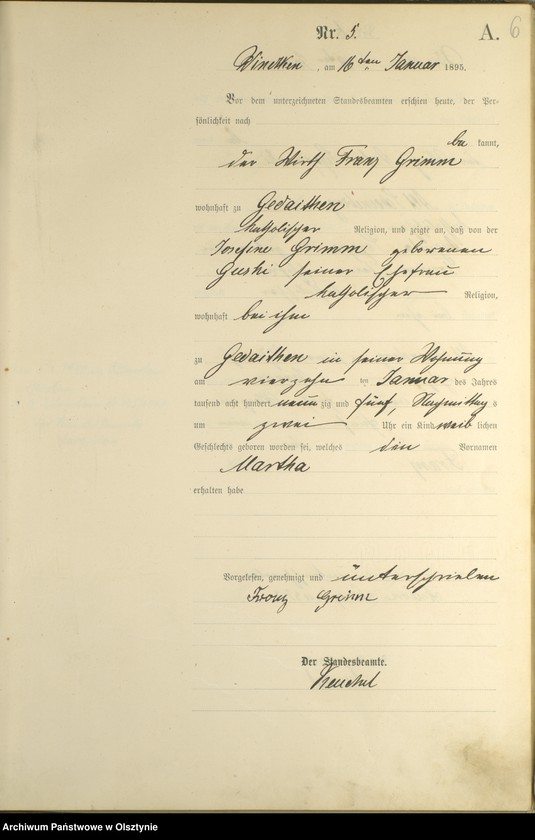 6
Nr. 5. A.
am 16ten Januar 1895.
Vor dem unterzeichneten Standesbeamten erschien heute, der Per-
sönlichkeit nach
be kannt,
der Wirth Franz Grimm
wohnhaft zu Gedaithen
katholischer Religion, und zeigte an, daß von der
Josefine Grimm geborenen
seiner Ehefrau
katholischer Religion,
wohnhaft bei ihm
zu Gedaithen in seiner Wohnung
am vierzehn ten Januar des Jahres
tausend acht hundert neun zig und fünf, Nachmittag s
um zwei Uhr ein Kind weib lichen
Geschlechts geboren worden sei, welches den Vornamen
Martha
erhalten habe
Vorgelesen, genehmigt und unterschrieben
Franz Grimm
Der Standesbeamte.
Archiwum Państwowe w Olsztynie